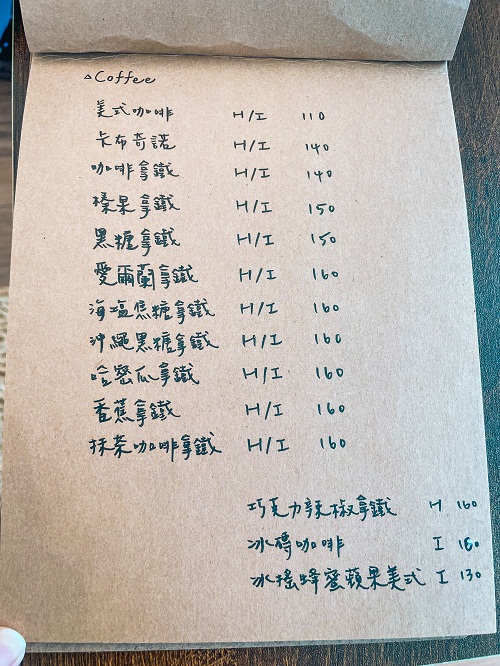 △Coffee
美式咖啡 H/I 110
卡布奇諾 H/I 140
咖啡拿鐵 H/I 140
榛果拿鐵 H/I 150
黑糖拿鐵 H/I 150
愛爾蘭拿鐵 H/I 160
海塩焦糖拿鐵 H/I 160
沖繩黑糖拿鐵 H/I 160
哈密瓜拿鐵 H/I 160
香蕉拿鐵 H/I 160
抹茶咖啡拿鐵 H/I 160
巧克力辣椒拿鐵 H 160
冰磚咖啡 I 160
冰搖蜂蜜蘋果美式 I 130